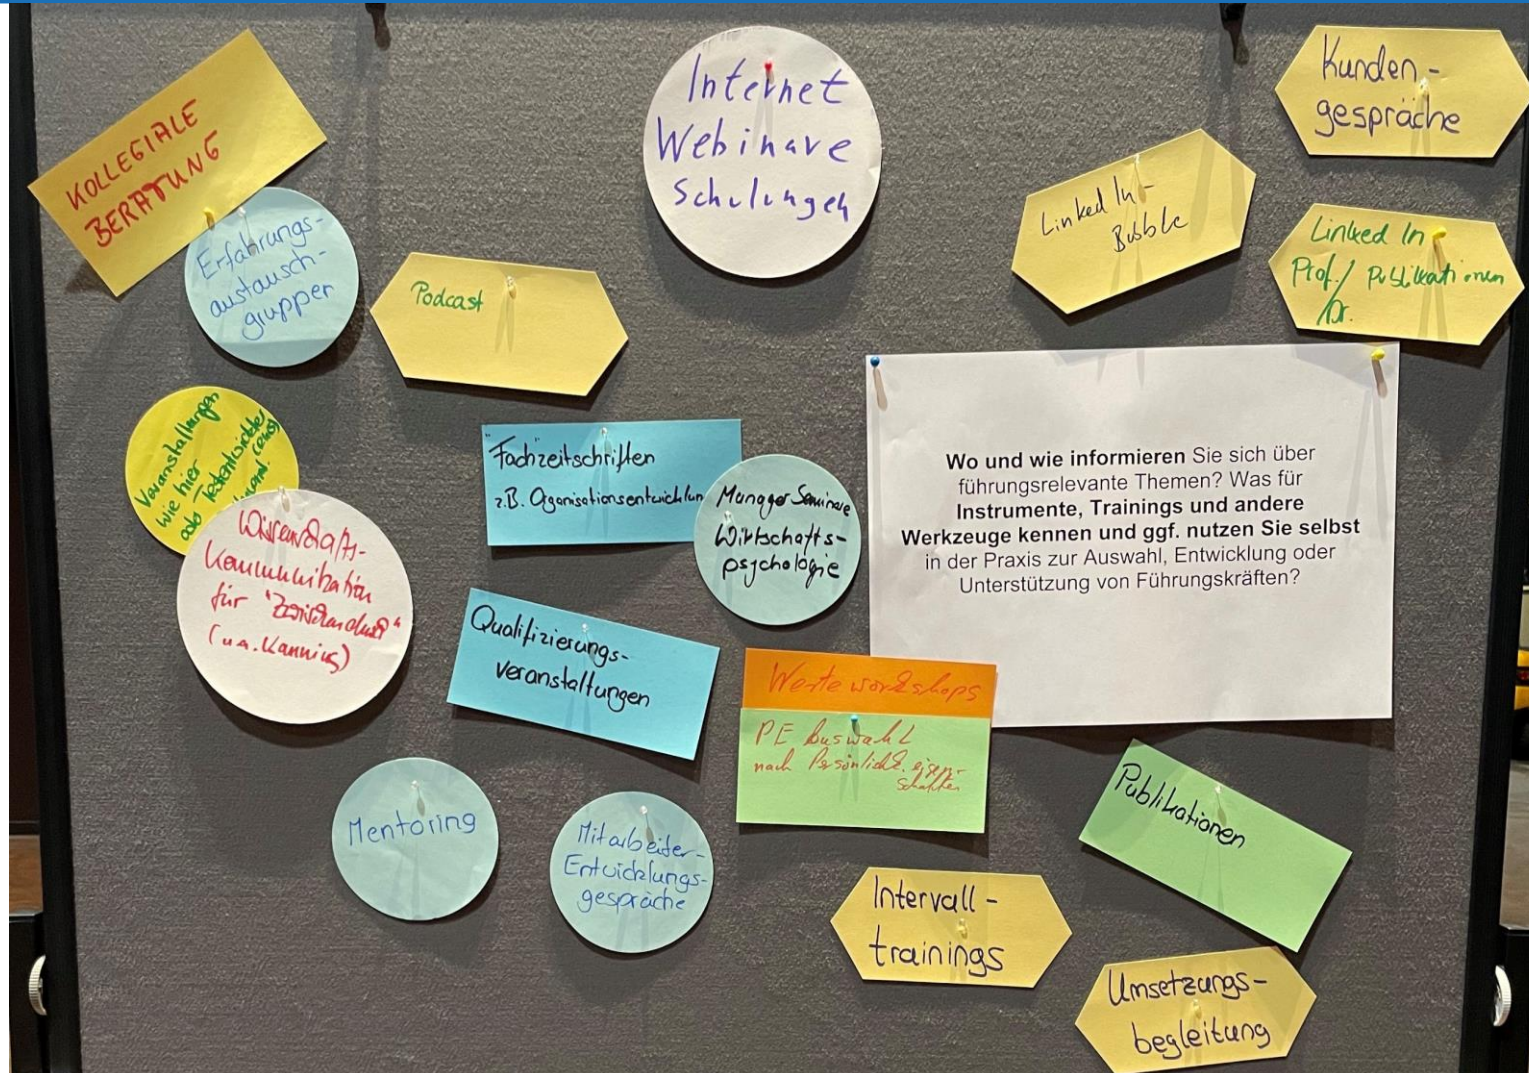 KOLLEGIALE
BERATUNG
Erfahrungs-
austausch-
gruppen
Podcast
Internet
Webinare
Schulungen
Linked In-
Bubble
Kunden-
gespräche
Linked In
Prof./ Publikationen
Dr.
Veranstaltungen
wie hier
oder Testentwickler
Wissenschafts-
kommunikation
für
(u.a. Kanning)
"Fachzeitschriften
z.B. Organisationsentwicklun
Manager Seminare
Wirtschafts-
psychologie
Wo und wie informieren Sie sich über
führungsrelevante Themen? Was für
Instrumente, Trainings und andere
Werkzeuge kennen und ggf. nutzen Sie selbst
in der Praxis zur Auswahl, Entwicklung oder
Unterstützung von Führungskräften?
Qualifizierungs-
veranstaltungen
Werte workshops
PE Auswahl
nach Persönlichk. eigen-
schaften
Mentoring
Mitarbeiter-
Entwicklungs-
gespräche
Publikationen
Intervall-
trainings
Umsetzungs-
begleitung